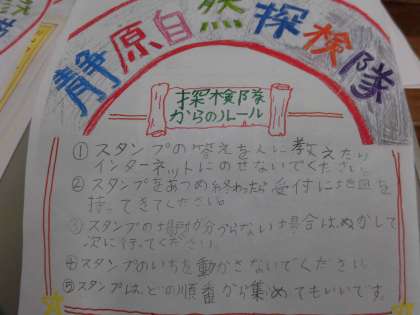 静原自然探検隊
探検隊
からのルール
① スタンプの答えを人に教えたり
インターネットにのせないでください。
② スタンプをあつめ終わったら受付に地図を
持ってきてください。
③ スタンプの場所が分からない場合はぬかして
次に行ってください。
④ スタンプのいちを動かさないでください
⑤ スタンプは、どの順番から集めてもいいです。